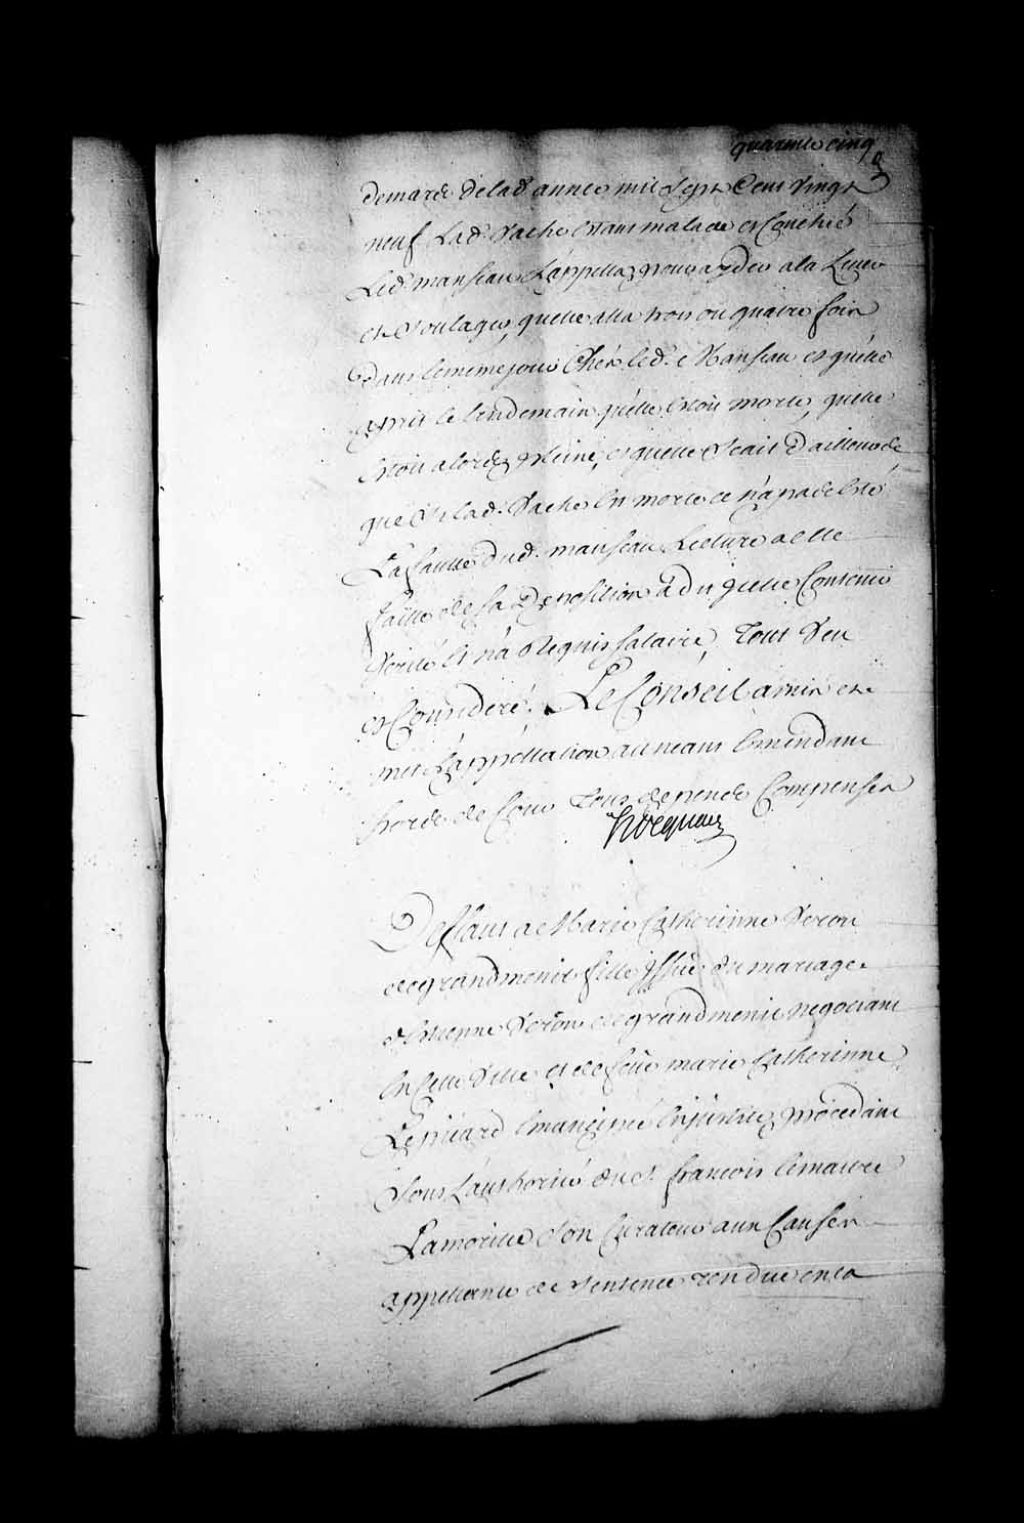 quarante cinq
de mars de lad. année mil Sept Cent vingt
neuf Lad. Vache Estant malade et Couchée
Led. manseau L'appella pour ayder a la Lever
et Soulager, quelle alla trois ou quatre fois
dans le meme jour Chés led. Manseau et quelle
aprit le lendemain quelle Estoit morte, quelle
Estoit alors pleine, et quelle Scait d'ailleurs
que Si lad. Vache En morte ce n'a pas Esté
La faute dud. manseau Lecture a elle
faitte de Sa Deposition a dit quelle Contenoit
Verité et n'a Requis Salaire, Tout Veu
et Consideré, Le Conseil a mis et
met L'appellation au neant Emendant
hors de Cour Tous depends Compensés
hocquart
Deffaut a Marie Catherinne Veron
de grandmenil fille Issüe du mariage
d'Estienne Veron de grandmenil negociant
En Cette Ville et de feüe marie Catherinne
Le picard Emancipée En justice, procedant
Sous L'authorité du Sr. francois lemaitre
Lamorille Son Curateur aux Causes
appellante de Sentence rendue en la